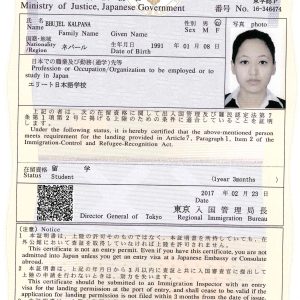 Ministry of Justice, Japanese Government
番号 No.
氏名 BHUJEL KALPANA
性別 男 女
写真 photo
Family Name Given Name
Sex M F
国籍・地域
Nationality/Region
ネパール
生年月日 1991 年 01 月 08 日
Date of Birth
日本での職業及び勤務(通学)先等
Profession or Occupation/Organization to be employed or to
study in Japan
エリート日本語学校
Under the following status, it is hereby certified that the above-mentioned person
meets requirement for the landing provided in Article 7, Paragraph 1, Item 2 of the
Immigration-Control and Refugee-Recognition Act.
在留資格 留 学
Status Student (1year 3months)
2017 年 02 月 23 日
東京 入国管理局長
Director General of Tokyo Regional Immigration Bureau
(注意) Notice
1 本証明書は、上陸の許可そのものではなく、本証明書を所持していても、在
外公館において査証を取得していなければ上陸を許可されません。
This certificate is not an entry permit. Even if you have this certificate, you are not
admitted into Japan unless you get an entry visa at a Japanese Embassy or Consulate
abroad.
This certificate should be submitted to an Immigration Inspector with an entry
visa for the landing permission at the port of entry, and shall cease to be valid if the
application for landing permission is not filed within 3 months from the date of issue.